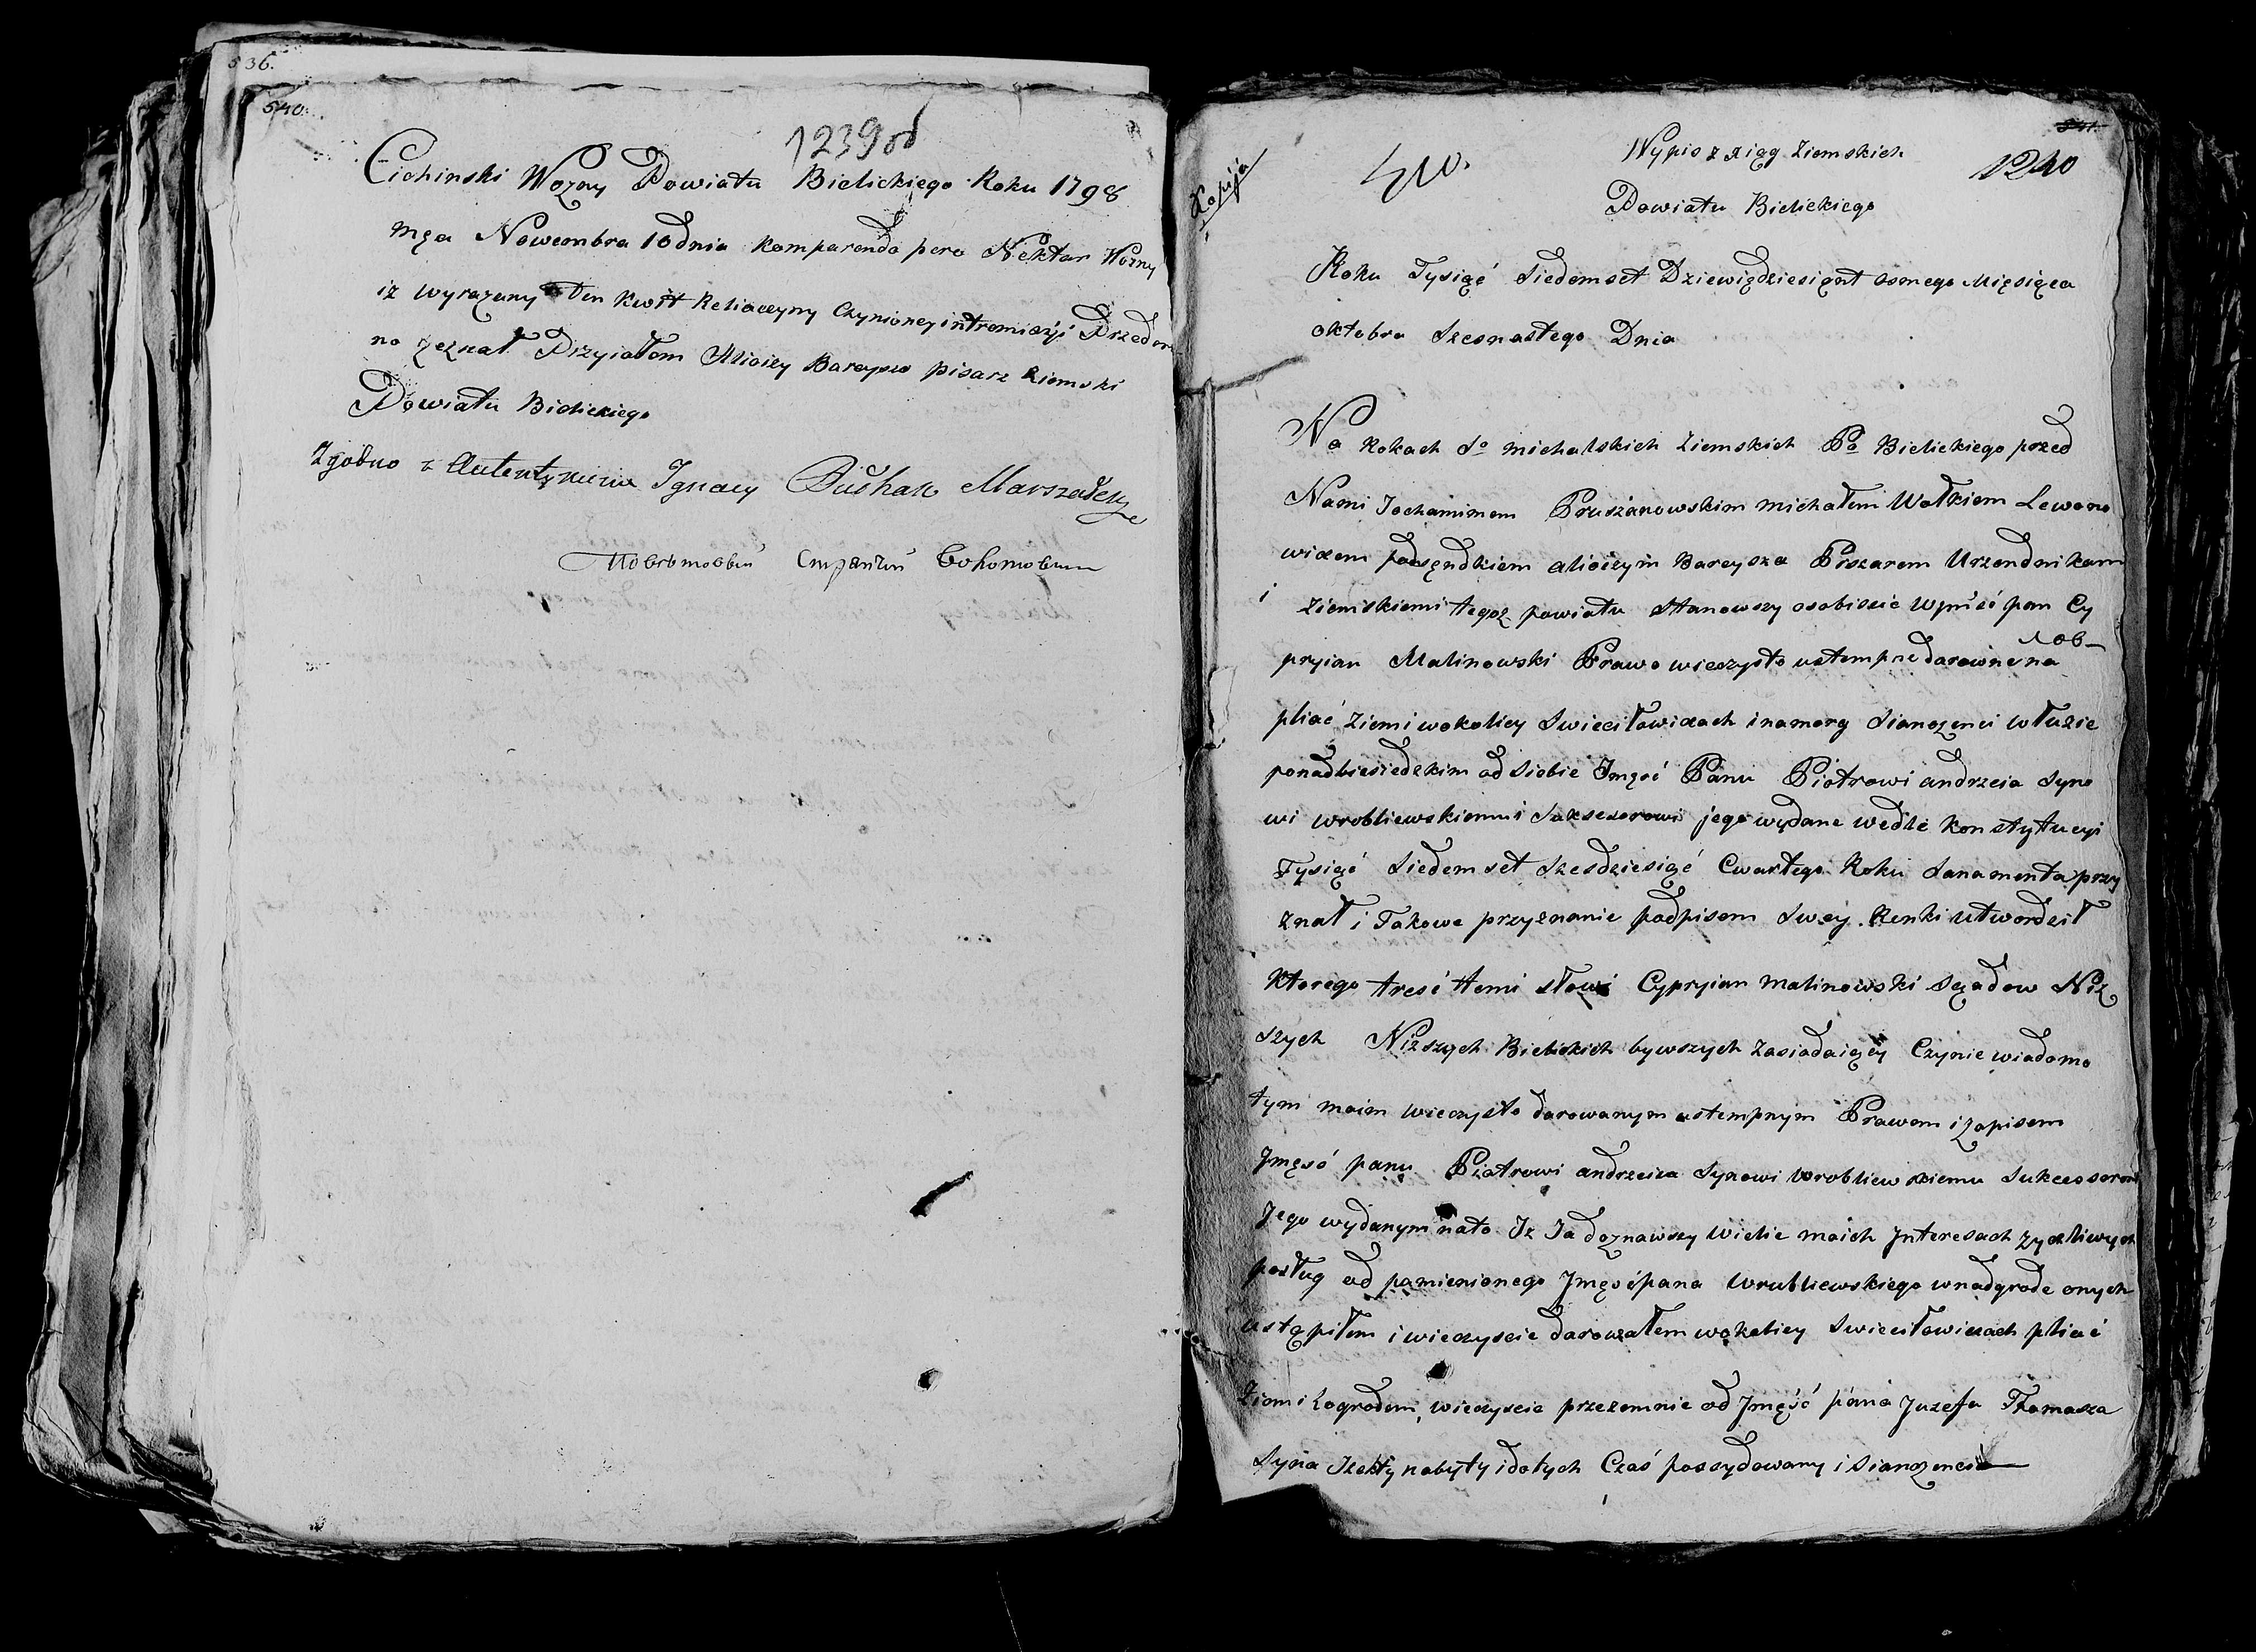 536.
540.
1239 об
Cichinski Wozny Powiatu Bielickiego Roku 1798
Mça Nowembra 10 dnia komparendo pero Nektar Wozny
iz wyrazany Ten kwit Reliaceyny Czynioney intromissyi Przedem
no zeznał Przyiąłem Alioizy Bareysza pisarz Ziemski
Powiatu Bielickiego
Zgodno z Autentykiem Ignacy Puchak Marszałek
541.
1240
Kopija
Wypis z Xiąg Ziemskich
Powiatu Bielickiego
Roku Tysiąć Siedemset Dziewiędziesiąnt osmego Mięsięca
oktobra Szesnastego Dnia
Na Rokach So michalskich Ziemskich Po Bielickiego przed
Nami Jochamimem Pruszanowskim michałem Wołkiem Lewono
wiczem podsęndkiem alioizym Bareysza Piszarem Urzendnikam
i Ziemskiemi tegoz powiatu Stanowszy osobiscie Wjmść pan Cy
pryian Malinowski Prawo wieczysto ustempne darowne na
pliać Ziemi wokolicy Swieciłowiczach i na morg Sianozenci w Łuzie
ponadbiesiedzkim od Siebie Jmęść Panu Piotrowi andrzeia Syno
wi wrobliewskiemu i Suksesorowi jego wydane wedle konstytucyi
Tysiąć Siedemset Szesdziesiąć Cwartego Roku Sanamenta przy
znał i Takowe przyznanie podpisem Swey Renki utwordził
Ktorego treść temi słowi Cypryian Malinowski Sęadow Niz
szych Nizszych Bielickich bywszych Zasiadaiący Czynie wiadomo
tym moim wieczysto darowanym ustempnym Prawem i zapisem
Jmęść panu Piotrowi andrzeiza Synowi Wrobliewskiemu Sukcessorom
Jego wydanym nato Iz Ja doznawszy Wielie moich Jnteresach zyczliwych
posług od pomienionego Jmęść pana Wrubliewskiego wnadgrode onych
ustąpiłem i wieczyscie darowałem wokolicy Swieciłowiczach pliać
Ziemi Zogrodem, wieczyscie przezemnie od Jmęść pana Juzefa Thomasza
Syna Jzekty nabyty i dotych Czas possydowany i Sianozenci